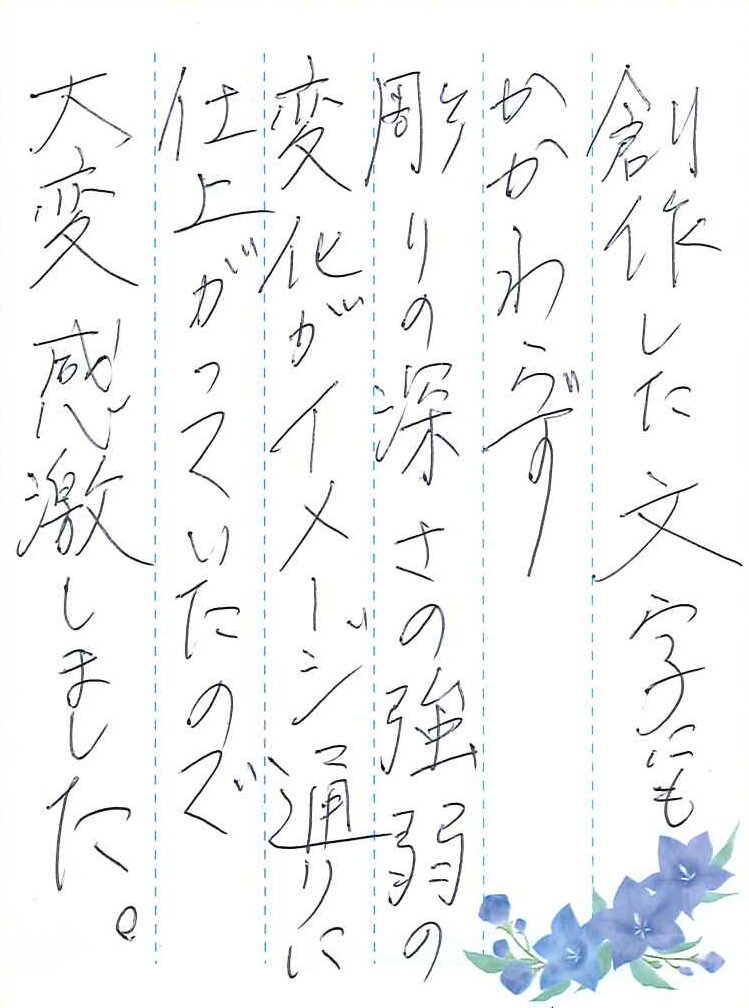 創作した文字にも
かかわらず
彫りの深さの強弱の
変化がイメージ通りに
仕上がっていたので
大変感激しました。